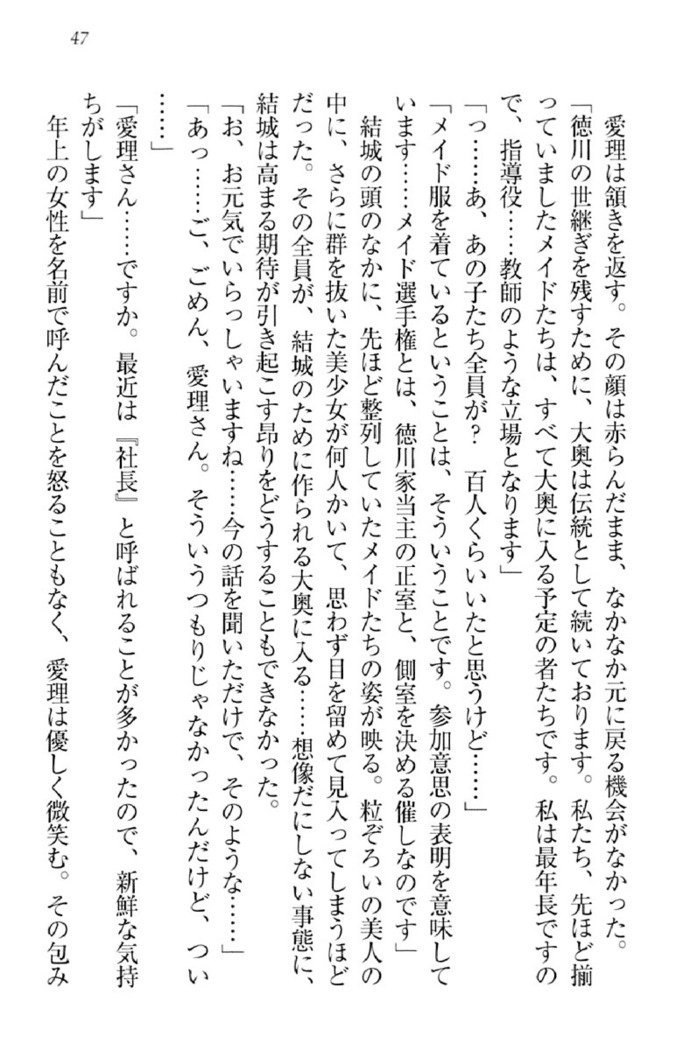 47
愛理は頷きを返す。その顔は赤らんだまま、なかなか元に戻る機会がなかった。
「徳川の世継ぎを残すために、大奥は伝統として続いております。私たち、先ほど揃
っていましたメイドたちは、すべて大奥に入る予定の者たちです。私は最年長ですの
で、指導役……教師のような立場となります」
「っ……あ、あの子たち全員が?　百人くらいいたと思うけど……」
「メイド服を着ているということは、そういうことです。参加意思の表明を意味して
います……メイド選手権とは、徳川家当主の正室と、側室を決める催しなのです」
結城の頭のなかに、先ほど整列していたメイドたちの姿が映る。粒ぞろいの美人の
中に、さらに群を抜いた美少女が何人かいて、思わず目を留めて見入ってしまうほど
だった。その全員が、結城のために作られる大奥に入る……想像だにしない事態に、
結城は高まる期待が引き起こす昂りをどうすることもできなかった。
「お、お元気でいらっしゃいますね……今の話を聞いただけで、そのような……」
「あっ……ご、ごめん、愛理さん。そういうつもりじゃなかったんだけど、つい
……」
「愛理さん……ですか。最近は『社長』と呼ばれることが多かったので、新鮮な気持
ちがします」
年上の女性を名前で呼んだことを怒ることもなく、愛理は優しく微笑む。その包み